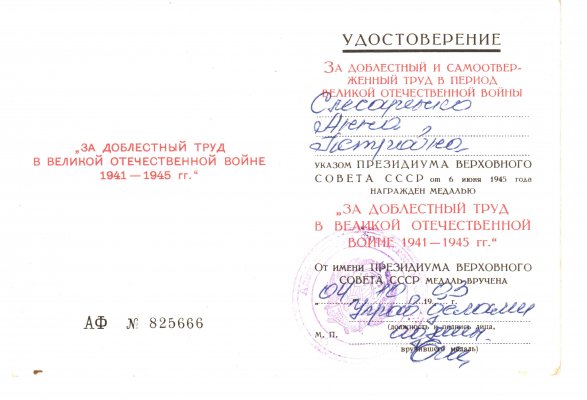 „ЗА ДОБЛЕСТНЫЙ ТРУД
В ВЕЛИКОЙ ОТЕЧЕСТВЕННОЙ ВОЙНЕ
1941—1945 гг.“
АФ № 825666
УДОСТОВЕРЕНИЕ
ЗА ДОБЛЕСТНЫЙ И САМООТВЕР-
ЖЕННЫЙ ТРУД В ПЕРИОД
ВЕЛИКОЙ ОТЕЧЕСТВЕННОЙ ВОЙНЫ
Слесаренко
Анна
УКАЗОМ ПРЕЗИДИУМА ВЕРХОВНОГО
СОВЕТА СССР от 6 июня 1945 года
НАГРАЖДЕН МЕДАЛЬЮ
„ЗА ДОБЛЕСТНЫЙ ТРУД
В ВЕЛИКОЙ ОТЕЧЕСТВЕННОЙ
ВОЙНЕ 1941—1945 гг.“
ОТ ИМЕНИ ПРЕЗИДИУМА ВЕРХОВНОГО
СОВЕТА СССР МЕДАЛЬ ВРУЧЕНА
19
Управ. делами
(должность и подпись лица,
М. П.
вручившего медаль)